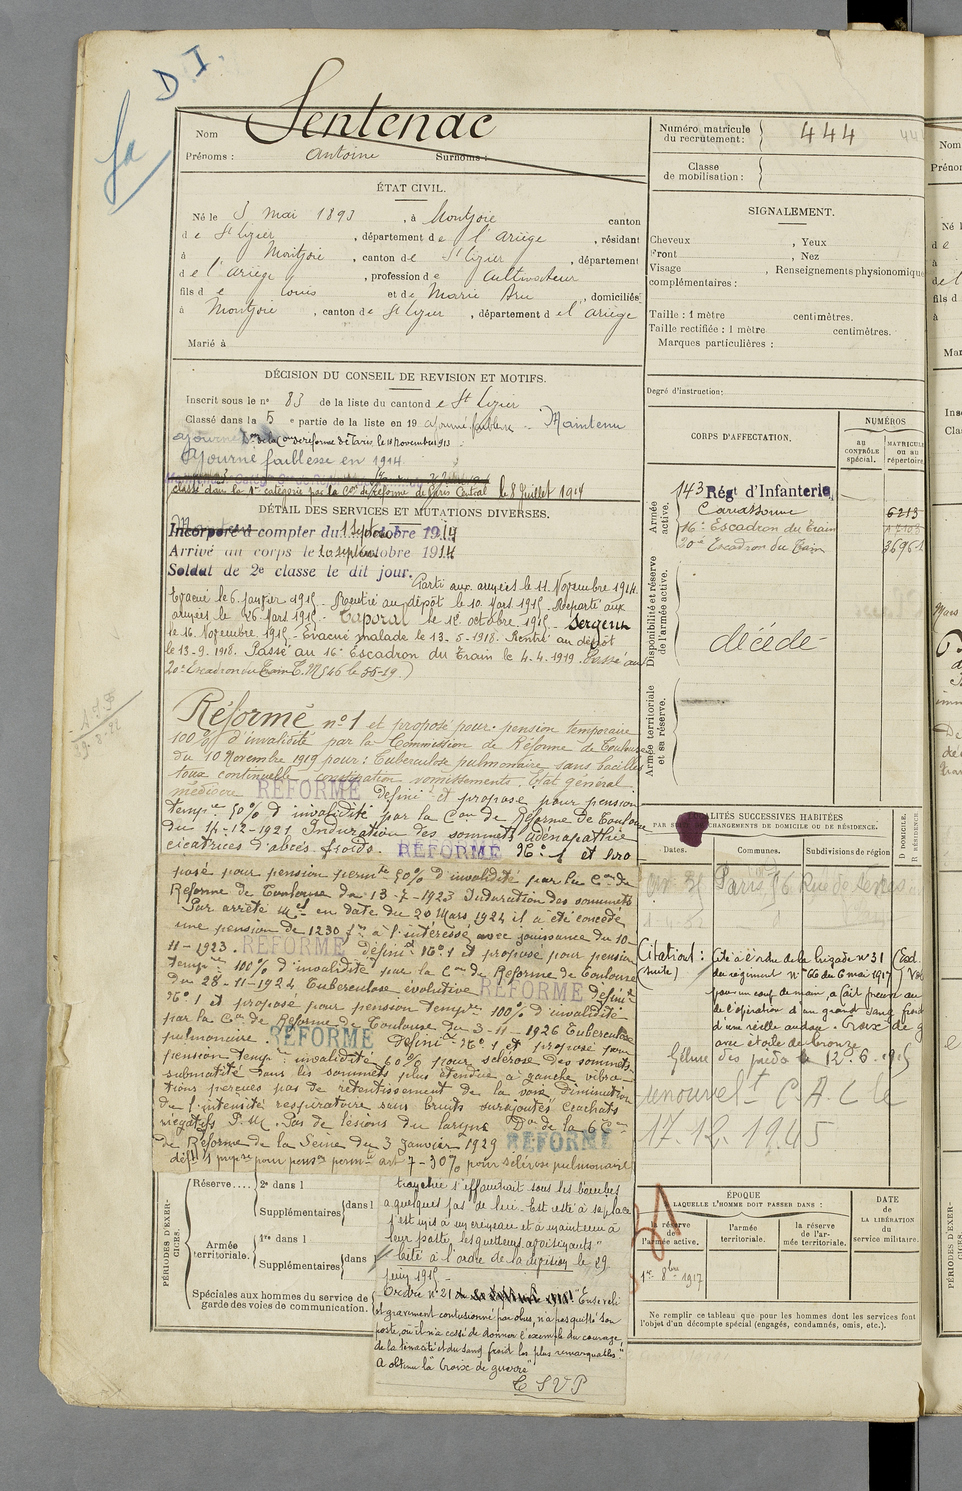 D I.
Nom Sentenac
Prénoms : Antoine Surnoms :
ÉTAT CIVIL.
Né le 3 mai 1893, à Montjoie canton
de St Lizier, département de l'ariège, résidant
à Montjoie, canton de St Lizier, département
de l'ariège, profession de cultivateur
fils de Louis et de Marie Aru, domiciliés
à Montjoie, canton de St Lizier, département de l'ariège
Marié à
DÉCISION DU CONSEIL DE REVISION ET MOTIFS.
Inscrit sous le no 83 de la liste du canton de St Lizier
Classé dans la 5e partie de la liste en 19 ajourné faiblesse - Maintenu
ajourné Don de la Con de réforme de Paris, le 18 Novembre 1913
Ajourné faiblesse en 1914
classé dans la 1re catégorie par la Con de Réforme de Paris Central le 8 Juillet 1914
DÉTAIL DES SERVICES ET MUTATIONS DIVERSES.
Incorporé à compter du 1 Septembre 1914
Arrivé au corps le 10 septembre 1914
Soldat de 2e classe le dit jour. Parti aux armées le 11 Novembre 1914.
Evacué le 6 janvier 1915 - Rentré au dépôt le 10 Mars 1915 - Reparti aux
armées le 26 Mars 1915 - Caporal le 12 octobre 1915 - Sergent
le 16 Novembre 1915 - Evacué malade le 13-5-1918. Rentré au dépôt
le 13-9-1918. Passé au 16e Escadron du Train le 4-4-1919. Passé au
20e Escadron du Train
Réformé no 1 et proposé pour pension temporaire
100 % d'invalidité par la Commission de Réforme de Toulouse
du 10 Novembre 1919 pour : Tuberculose pulmonaire sans bacilles
toux continuelle constipation vomissements. Etat général
médiocre RÉFORMÉ définit et proposé pour pension
tempre 50% d'invalidité par la Con de Réforme de Toulouse
du 14-12-1921 Induration des sommets adénopathie
cicatrices d'abcès froids. RÉFORMÉ No 1 et pro
posé pour pension permte 50% d'invalidité par la Con de
Réforme de Toulouse du 13-7-1923 Induration des sommets
Par arrêté Mel en date du 20 Mars 1924 il a été concédé
une pension de 1230 frs à l'intéressé avec jouissance du 10-
11-1923. RÉFORMÉ définit No 1 et proposé pour pension
tempre 100% d'invalidité par la Con de Réforme de Toulouse
du 28-11-1924 Tuberculose évolutive RÉFORMÉ définit
No 1 et proposé pour pension tempre 100% d'invalidité
par la Con de Réforme de Toulouse du 3-11-1926 Tuberculose
pulmonaire. RÉFORMÉ définit No 1 et proposé pour
pension tempre invalidité 60% pour sclérose des sommets
submatité dans les sommets plus étendue à gauche vibra-
tions perçues pas de retentissement de la voix diminution
de l'intensité respiratoire sans bruits surajoutés crachats
négatifs Pas de lésions du larynx Don de la 6e Con
de Réforme de la Seine du 3 Janvier 1929 RÉFORMÉ
déft 1 propre pour pension permte art 7 - 30% pour sclérose pulmonaire
PÉRIODES D'EXERCICES.
Réserve.... 2e dans l
Supplémentaires dans l
Armée territoriale. 1re dans l
Supplémentaires dans l
Spéciales aux hommes du service de
garde des voies de communication.
tranchée s'effondrait sous les bombes
à quelques pas de lui. Est resté à sa place
s'est mis à un créneau et a maintenu à
leur poste les guetteurs avoisinants"
Cité à l'ordre de la division le 29
juin 1915 -
Ordre no 21 "Enseveli
et gravement contusionné par obus, n'a pas quitté son
poste, où il n'a cessé de donner l'exemple du courage,
de la ténacité et du sang froid les plus remarquables."
A obtenu la "Croix de guerre"
T S V P
Numéro matricule
du recrutement : 444
Classe
de mobilisation :
SIGNALEMENT.
Cheveux , Yeux
Front , Nez
Visage , Renseignements physionomiques
complémentaires :
Taille : 1 mètre centimètres.
Taille rectifiée : 1 mètre centimètres.
Marques particulières :
Degré d'instruction:
CORPS D'AFFECTATION.
NUMÉROS
au CONTRÔLE spécial.
MATRICULE ou au répertoire.
Armée active.
143 Régt d'Infanterie
Carcassonne 6213
16e Escadron du Train
20e Escadron du Train
Disponibilité et réserve de l'armée active.
décédé -
Armée territoriale et sa réserve.
LOCALITÉS SUCCESSIVES HABITÉES
PAR SUITE DE CHANGEMENTS DE DOMICILE OU DE RÉSIDENCE.
Dates. Communes. Subdivisions de région
D DOMICILE.
R RÉSIDENCE
Paris 96 Rue de Sèvres
Citation : Cité à l'ordre de la brigade no 31
(suite) du régiment no 66 du 6 mai 1917
pour un coup de main, a fait preuve au
de l'opération d'un grand sang froid
d'une réelle audace. Croix de g
avec étoile de bronze
12-6-1915
renouvelt C.A.C le
17.12.1945
ÉPOQUE
À LAQUELLE L'HOMME DOIT PASSER DANS :
DATE
DE
LA LIBÉRATION
du
service militaire.
la réserve de l'armée active.
l'armée territoriale.
la réserve de l'armée territoriale.
1er 8bre 1917
Ne remplir ce tableau que pour les hommes dont les services font
l'objet d'un décompte spécial (engagés, condamnés, omis, etc.).